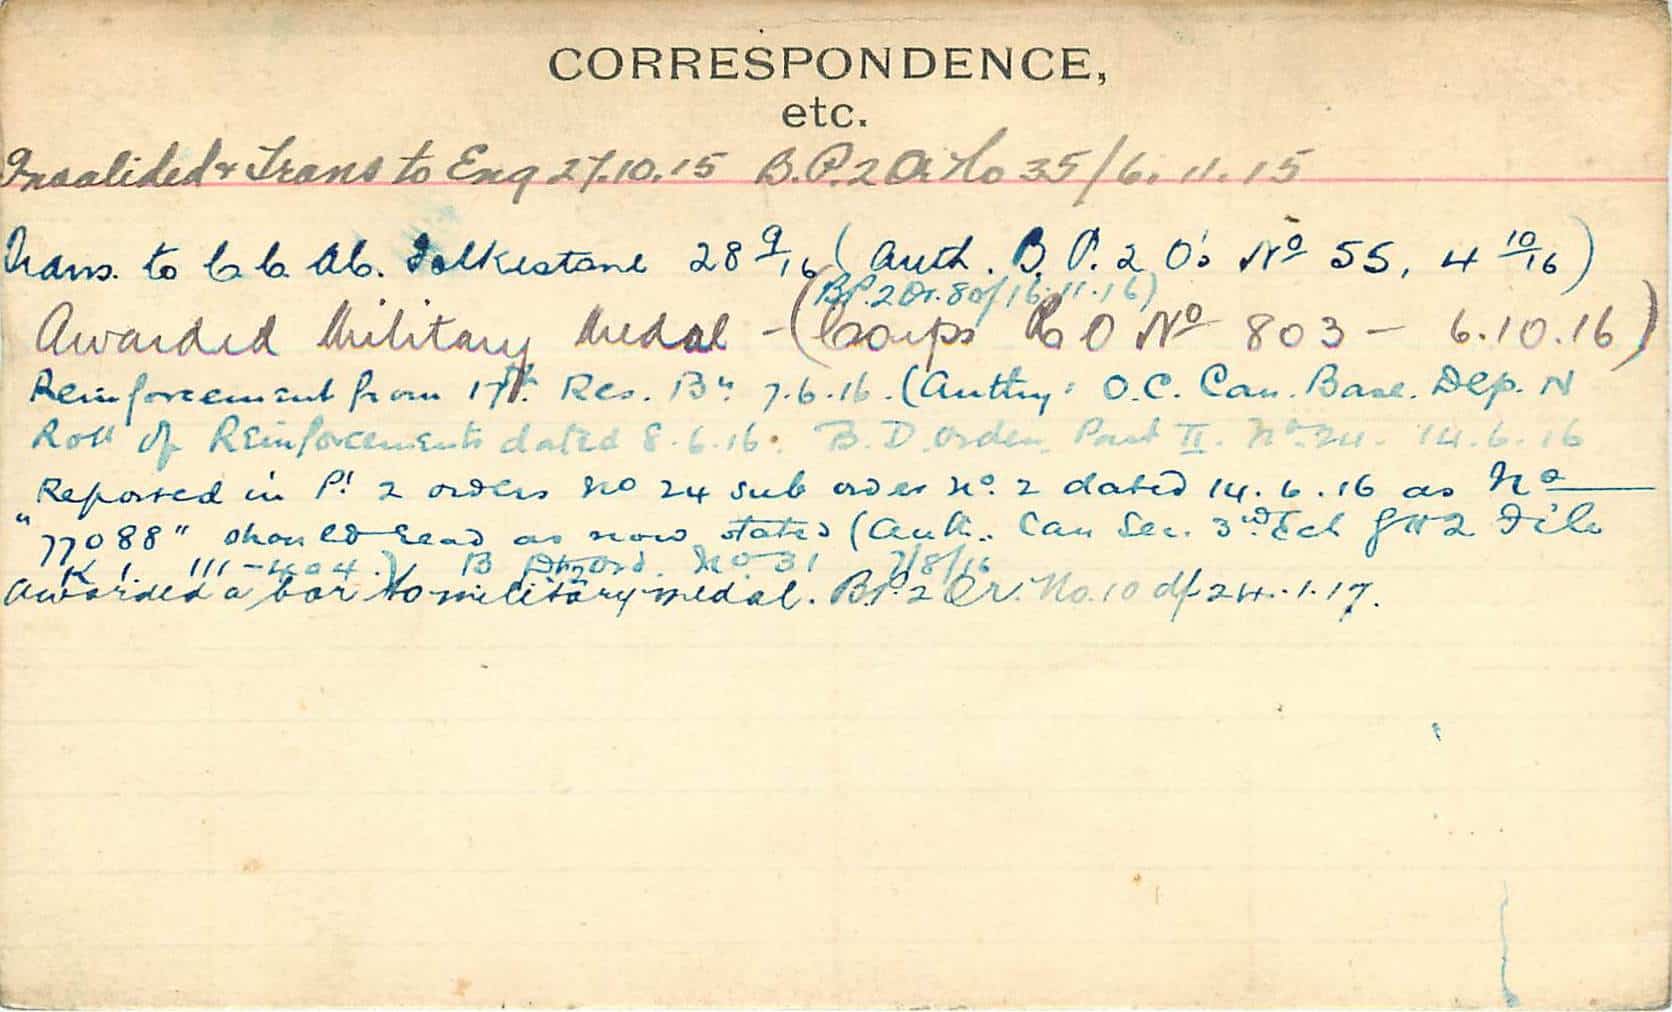 CORRESPONDENCE,
etc.
Invalided & Trans to Eng 27.10.15 B.P.2 Or No 35/6.11.15
Trans. to C.C.A.C. Folkestone 28 9/16 (Auth. B.P.2 O's No 55, 4 10/16)
(B.P.2 Or. 80/16.11.16)
Awarded Military Medal - (Corps R O No 803 - 6.10.16)
Reinforcement from 17th. Res. Bn. 7.6.16. (Authy: O.C. Can. Base. Dep. N
Roll of Reinforcements dated 8.6.16. B.D. Orders Part II. No. 24. 14.6.16
Reported in Pt 2 orders No 24 sub order No. 2 dated 14.6.16 as No
"77088" should read as now stated (Auth.. Can Sec. 3rd Ech GHQ File
K 1. 111-404.) B Ord. No 31 7/8/16
Awarded a bar to military medal. B.P.2 Or. No. 10 d/ 24.1.17.